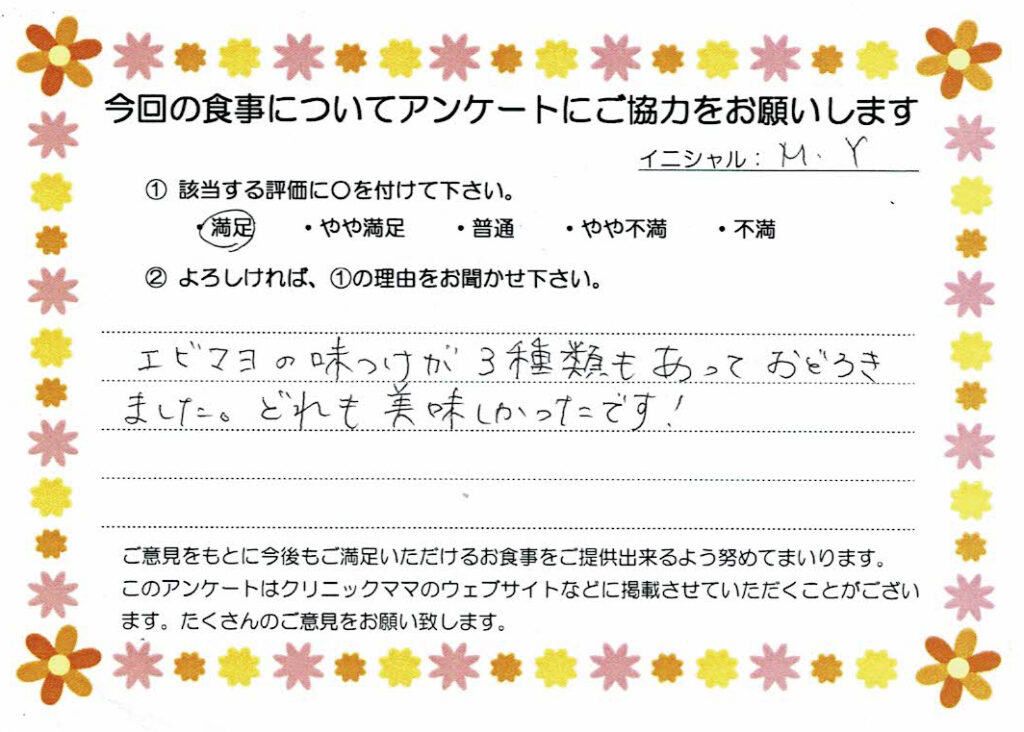 今回の食事についてアンケートにご協力をお願いします
イニシャル： M. Y
① 該当する評価に〇を付けて下さい。
・満足 ・やや満足 ・普通 ・やや不満 ・不満
② よろしければ、①の理由をお聞かせ下さい。
エビマヨの味つけが3種類もあっておどろき
ました。どれも美味しかったです！
ご意見をもとに今後もご満足いただけるお食事をご提供出来るよう努めてまいります。
このアンケートはクリニックママのウェブサイトなどに掲載させていただくことがござい
ます。たくさんのご意見をお願い致します。